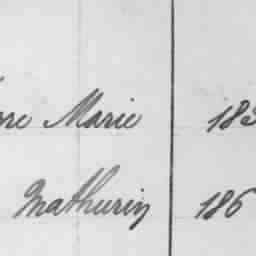 rre Marie 183
Mathurin 186